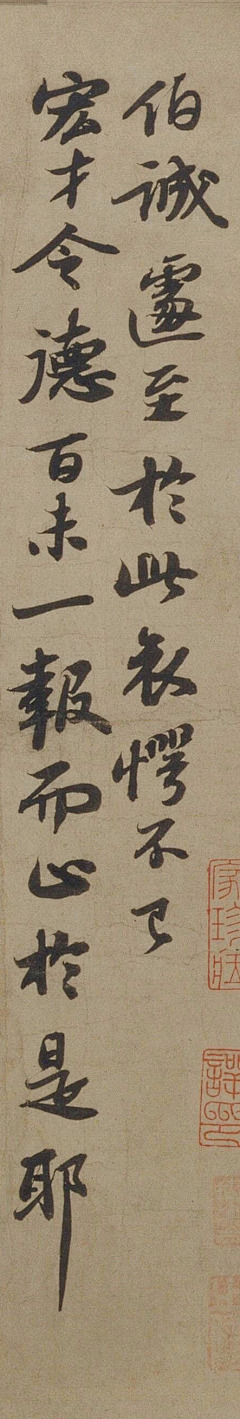 伯誠遽至於此哀愕不已
宏才令德百未一報而止於是耶